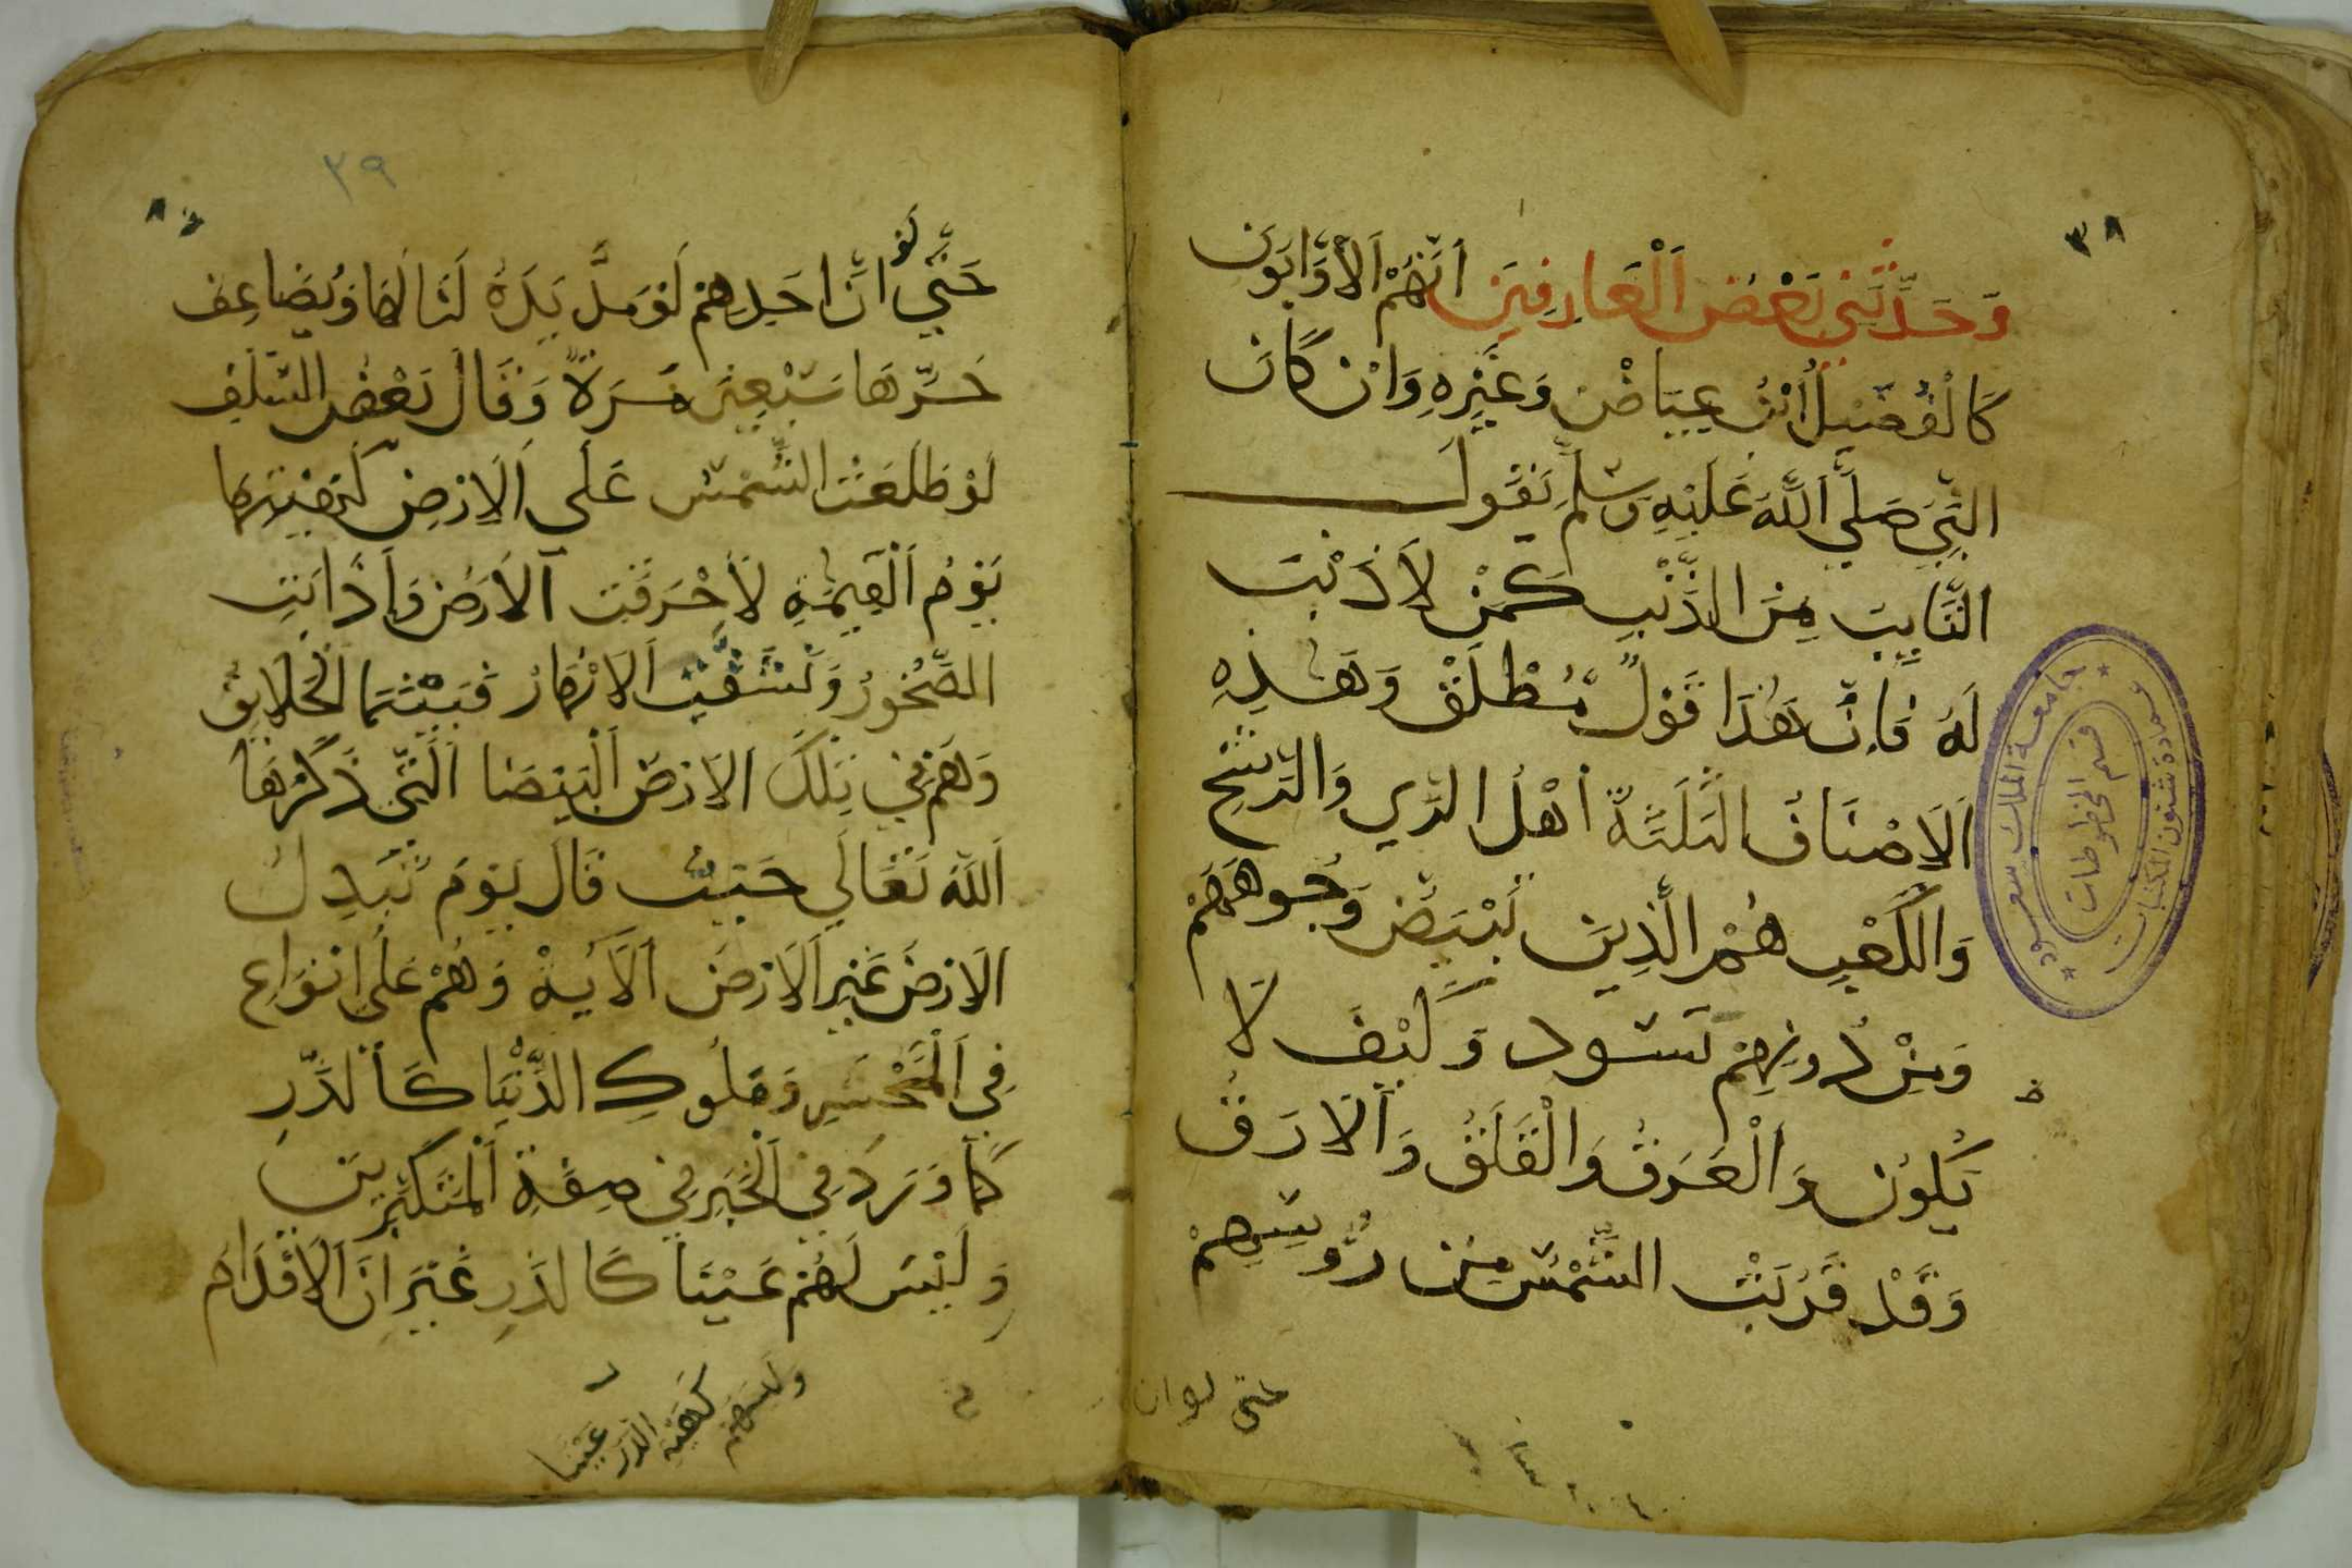 ٣٨
وَحَدَّثَنِي بَعْضُ اَلْعَارِفِينَ اَنَّهُمْ اَلْأَوَّابُونَ
كَالْفُضَيْلُ ابْنُ عِيَاضْ وَغَيْرِهِ وَاِنْ كَانَ
النَّبِيَ صَلَّي اَللَّهُ عَلَيْهِ وَسَلَّمَ يَقُولَ
التَّايِبَ مِنَ الذَّنْبِ كَمَنْ لاَ ذَنْبَ
لَهُ فَاِنَّ هَذَا قَوْلٌ مُطْلَقْ وَهَذِهِ
اَلاَصْنَافُ الثَلَثَةُ اَهْلُ الرِّي وَالرَّشْحِ
وَالْكَعْبِ هُمْ الَّذِينَ تَبْيَضُ وُجُوهَهُمْ
وَمِنْ دُونِهِمْ تَسْوَد وَكَيْفَ لَا
يَكُونُ وَاَلْعَرَقُ وَالْقَلَقُ وَاَلاَرَقُ
وَقَدْ قَرُبَتْ الشَّمْسُ مِنْ رُوسِهِمْ
حتى لو ان
جامعة الملك سعود
قسم المخطوطات
عمادة شئون المكتبات
٣٩
لَوْ
حَتَّي اَنَّ اَحَدِهِمْ لَوْ مَدَّ يَدَهُ لَنَالَهَا وَيُضَاعِف
حَرِّهَا سَبْعِينَ مَرَةً وَقَالَ بَعْضُ السَّلَفِ
لَوْ طَلَعَتْ الشَّمْسُ عَلَي اَلاَرْضِ كَهَيْئتِهَا
يَوْمَ اَلْقِيمَةِ لاَحْرَقَتْ اَلاَرْضَ وَاَذَابَتِ
الصُّخُورُ وَنَشَّفَتْ اَلاَنْهَارُ فَبَيْنَمَا اَلْخَلاَيِقُ
وَهُمْ فِي تِلْكَ الاَرْضِ اَلْبَيْضَا اَلَّتِي ذَكَرَهَا
اَللَّهُ تَعَالَي حَيْثُ قَالَ يَوْمَ تُبَدِلُ
الاَرْضُ غَيْرَ اَلاَرْضِ اَلَايَةْ وَهُمْ عَلَي اَنْوَاعٍ
فِي اَلْمَحْشَرِ وَمُلُوكِ الدُّنْيَا كَاَلذَّرِ
كَمَا وَرَدَ فِي اَلْخَبَرِ فِي صِفَةِ اَلْمُتَكَبِّرِينَ
وَلَيْسَ لَهُمْ عَيْنَا كَالذَّرِ غَيْرَ اَنَّ اَلاَقْدَامَ
وليس هم
كَهَيْئة الذَر
عَيْنا